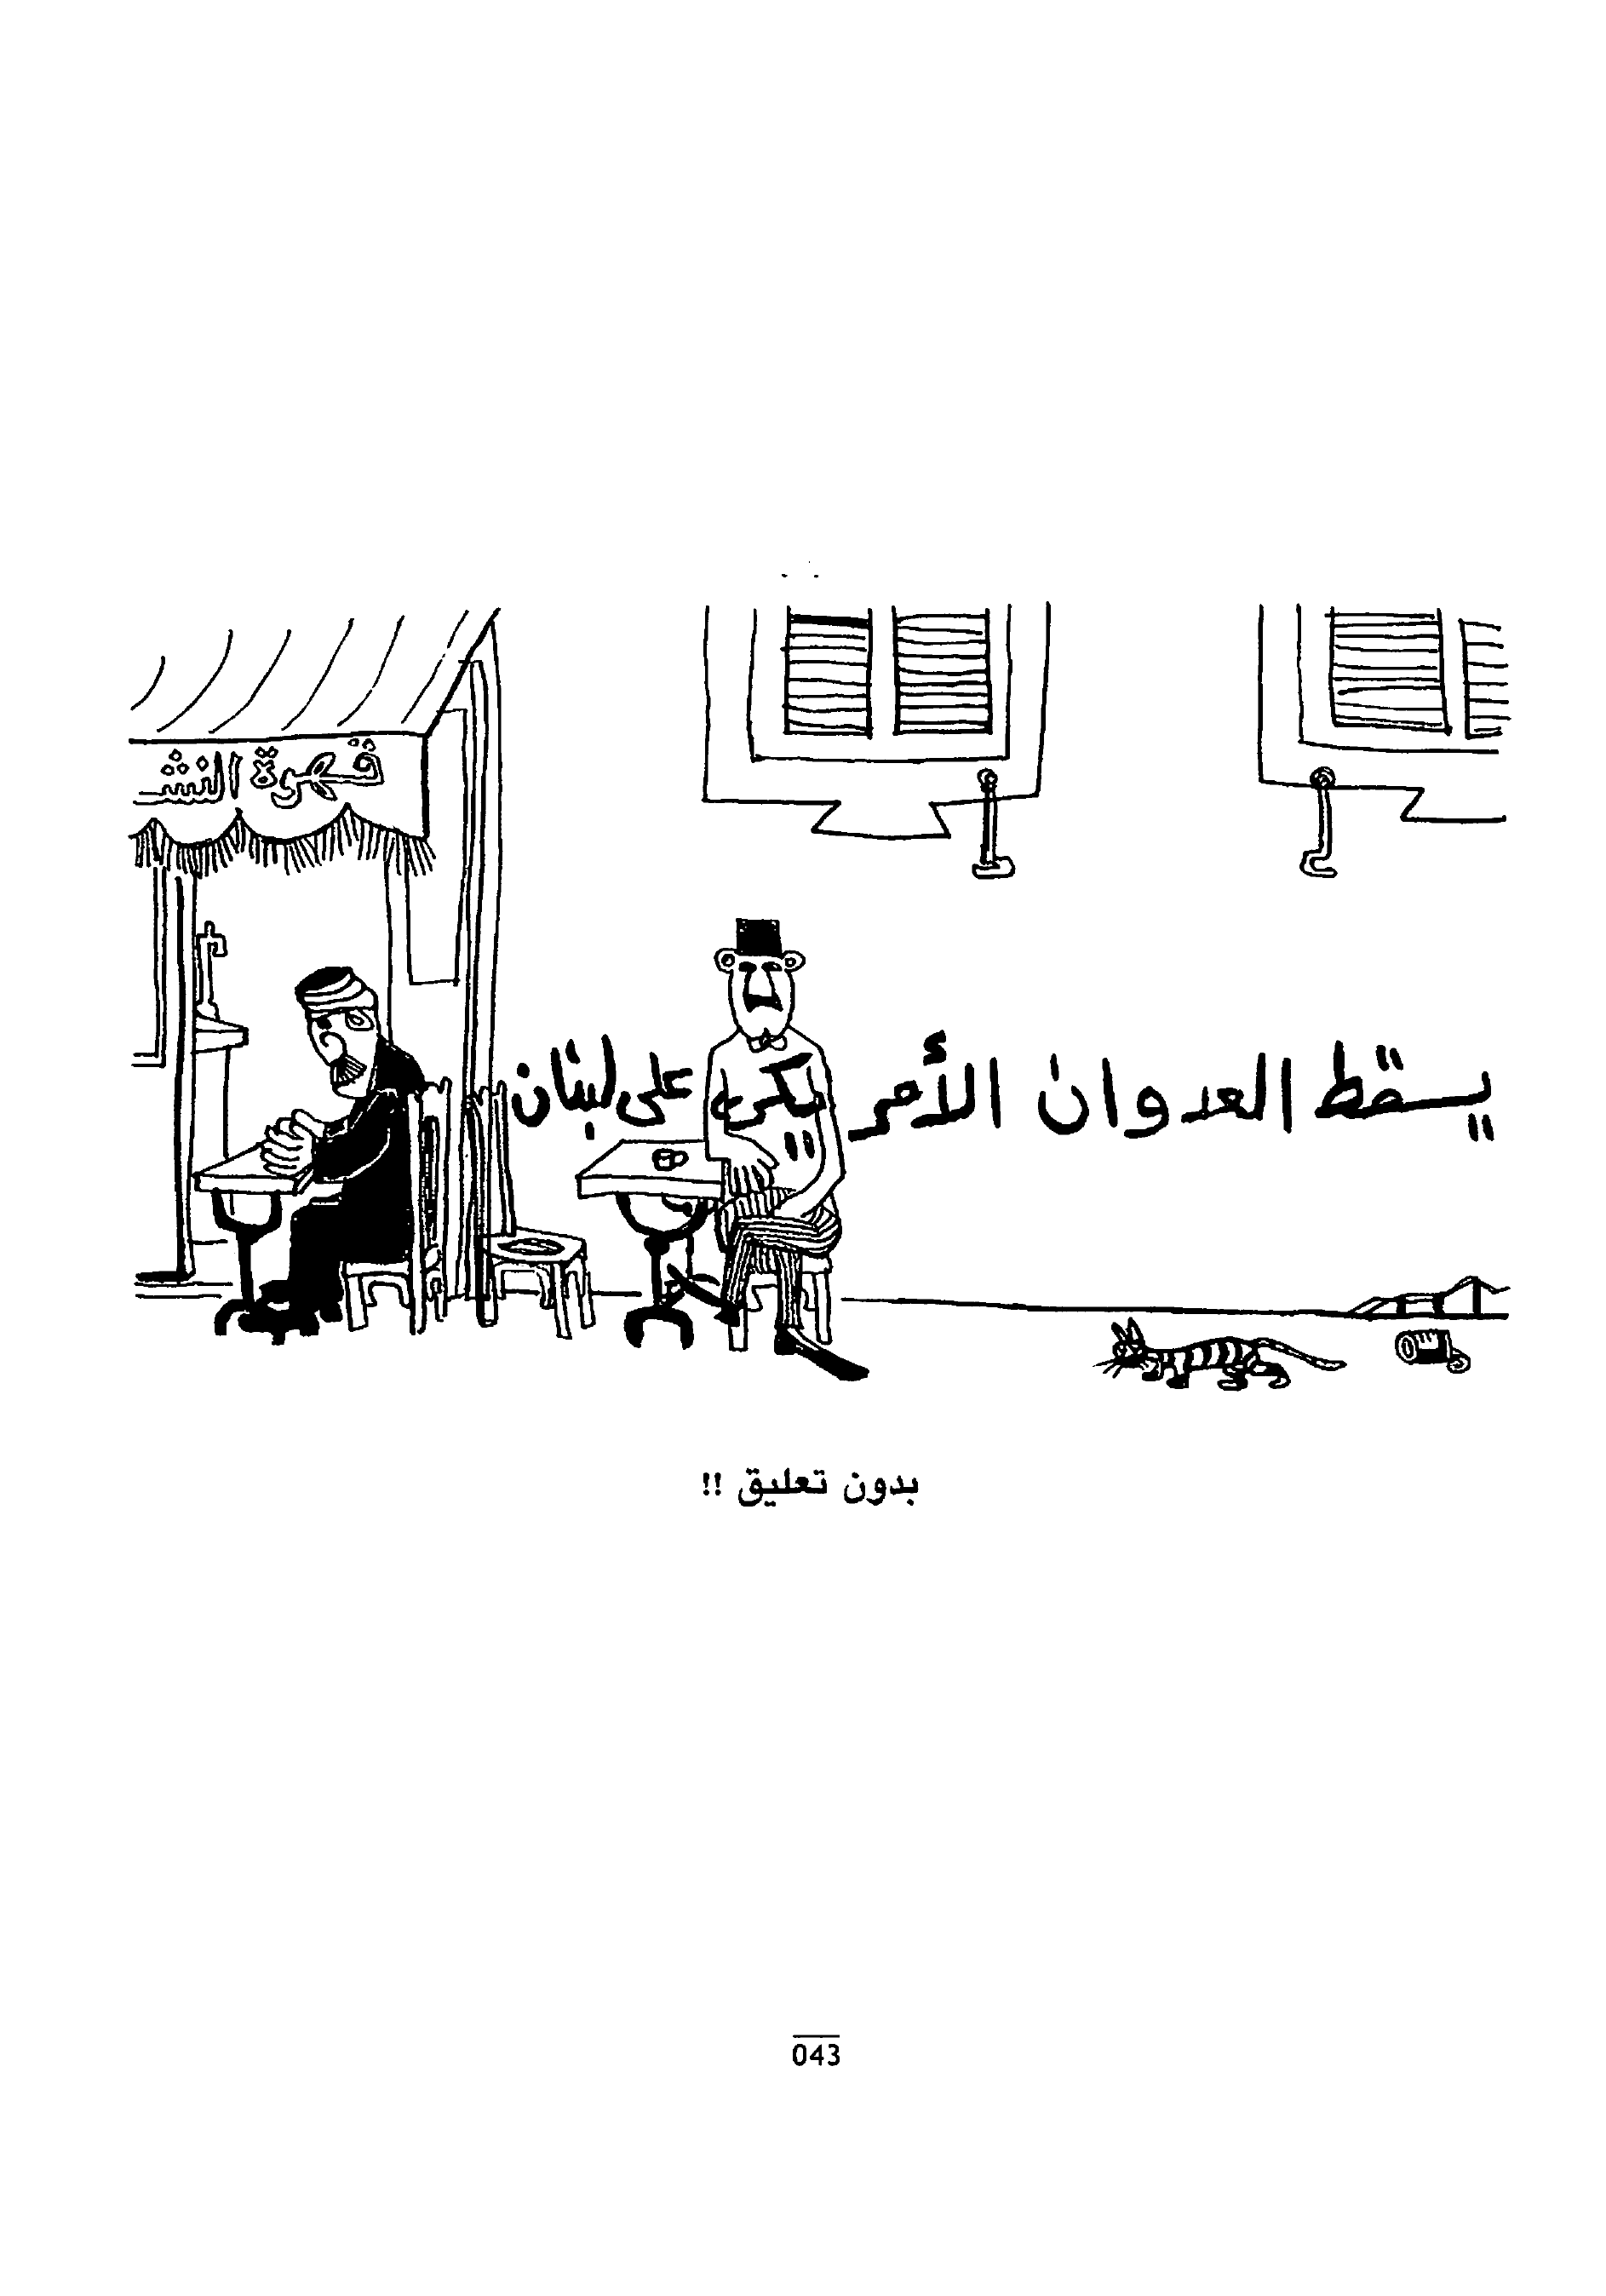 قهوة النشـ
يسقط العدوان الأمريكى على لبنان
بدون تعليق !!
043